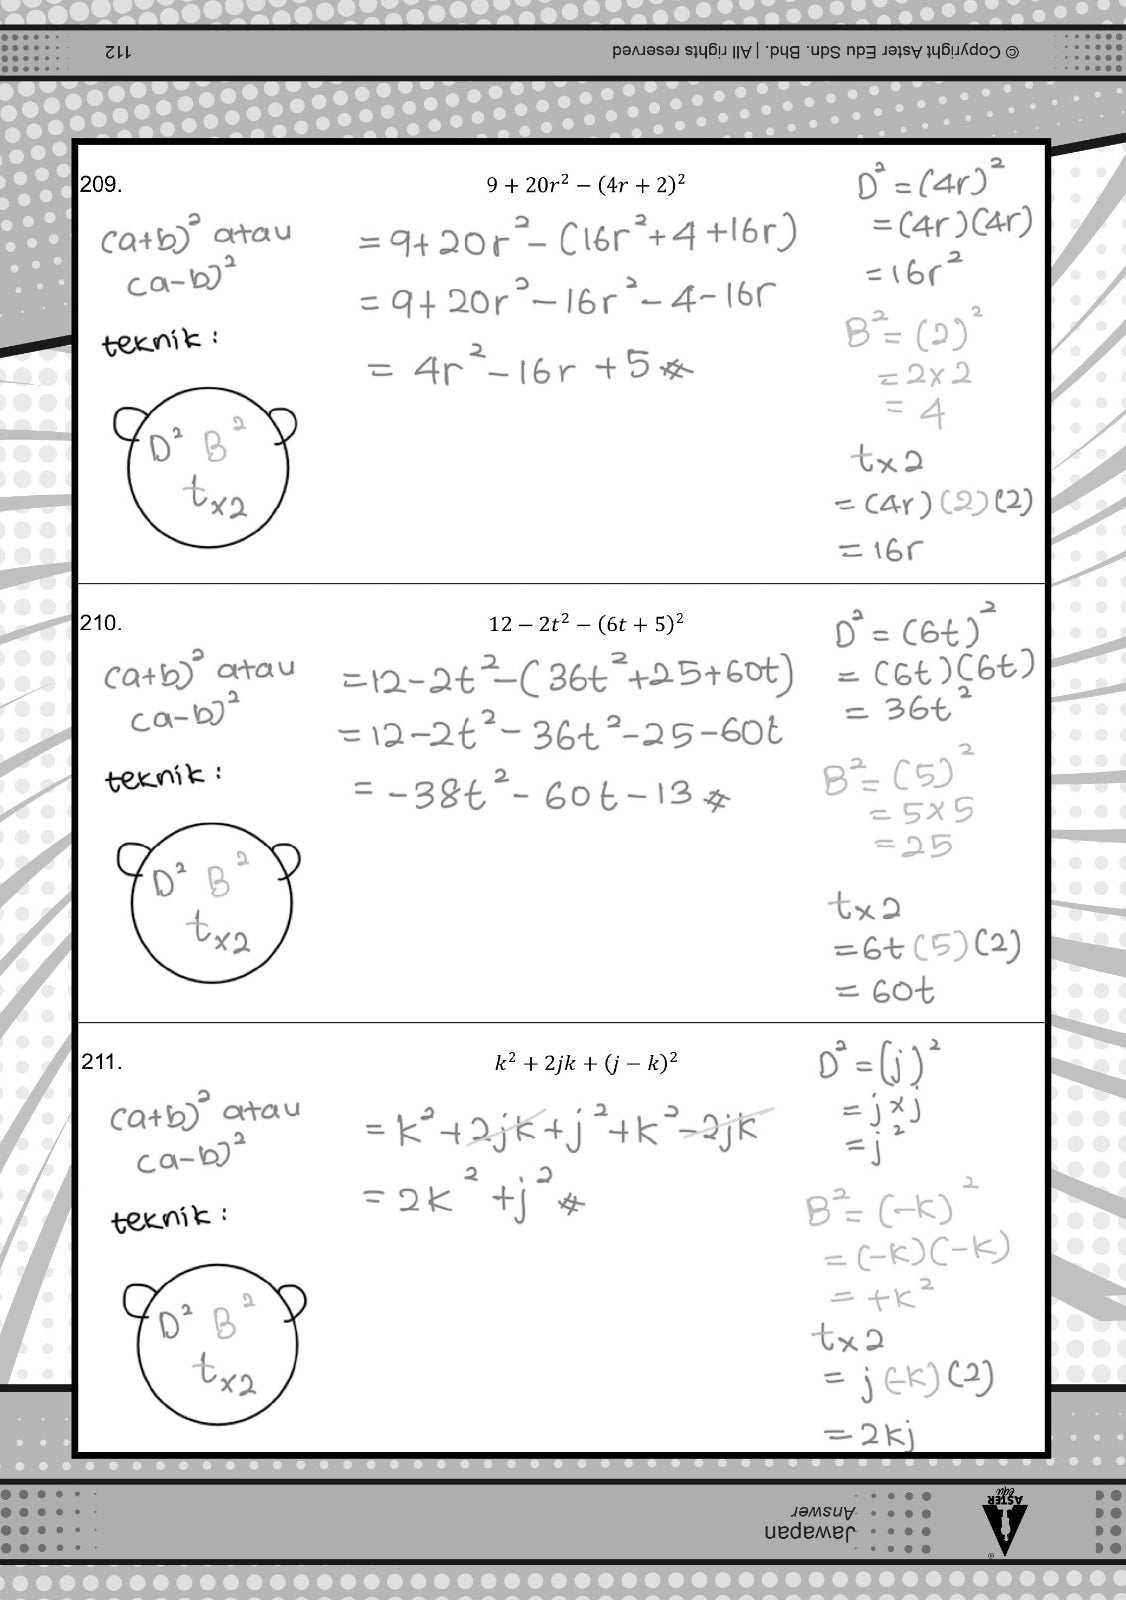 112
© Copyright Aster Edu Sdn. Bhd. | All rights reserved
209.
9 + 20r² − (4r + 2)²
(a+b)² atau
(a-b)²
teknik :
D² B²
t×2
= 9+20r² - (16r²+4+16r)
= 9+20r² - 16r² - 4 - 16r
= 4r² - 16r + 5 #
D² = (4r)²
= (4r)(4r)
= 16r²
B² = (2)²
= 2×2
= 4
t×2
= (4r)(2)(2)
= 16r
210.
12 − 2t² − (6t + 5)²
(a+b)² atau
(a-b)²
teknik :
D² B²
t×2
= 12-2t² - (36t²+25+60t)
= 12-2t² - 36t² - 25 - 60t
= -38t² - 60t - 13 #
D² = (6t)²
= (6t)(6t)
= 36t²
B² = (5)²
= 5×5
= 25
t×2
= 6t(5)(2)
= 60t
211.
k² + 2jk + (j − k)²
(a+b)² atau
(a-b)²
teknik :
D² B²
t×2
= k² + 2jk + j² + k² - 2jk
= 2k² + j² #
D² = (j)²
= j×j
= j²
B² = (-k)²
= (-k)(-k)
= +k²
t×2
= j(-k)(2)
= 2kj
Jawapan
Answer
ASTER
edu
®